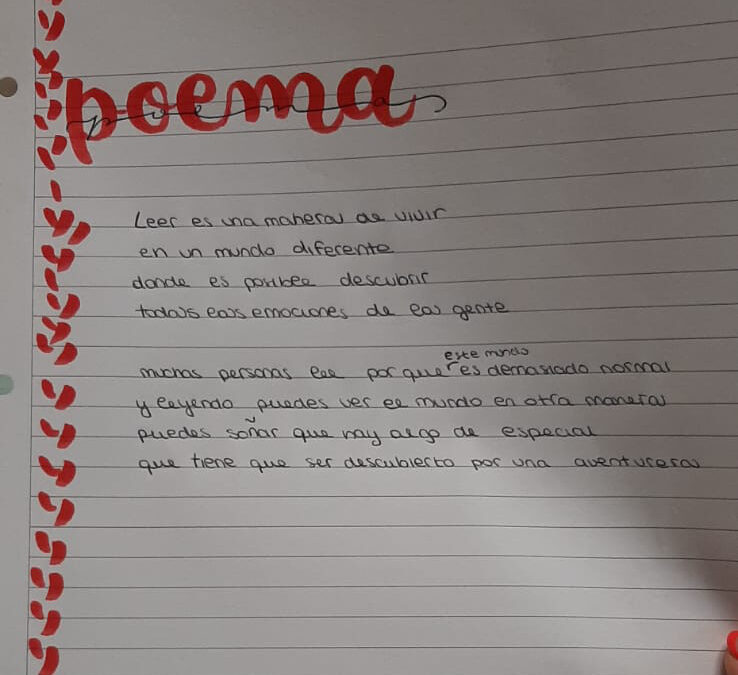 poema
poema
Leer es una manera de vivir
en un mundo diferente
donde es posible descubrir
todas las emociones de la gente
muchas personas lee por que este mundo es demasiado normal
y leyendo puedes ver el mundo en otra manera
puedes soñar que hay algo de especial
que tiene que ser descubierto por una aventurera